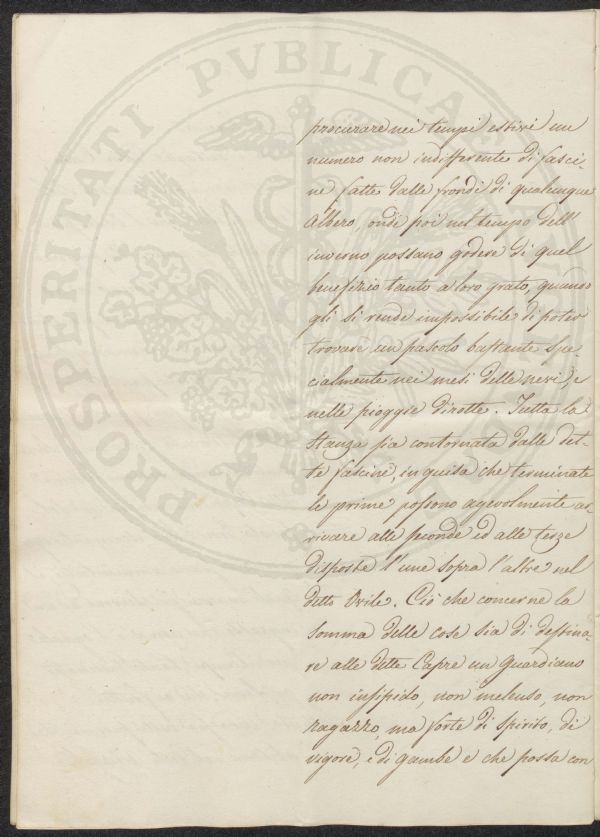 PROSPERITATI PVBLICAE
procurare nei tempi estivi un
numero non indifferente di fasci-
ne fatte dalle frondi di qualunque
Albero, onde poi nel tempo dell'
inverno possano godere di quel
benefizio tanto a loro grato, quando
gli si rende impossibile di poter
trovare un pascolo bastante spe-
cialmente nei mesi delle nevi, e
nelle pioggie dirotte. Tutta la
stanza sia contornata dalle det-
te fascine, in guisa che terminate
le prime possono agevolmente ar-
rivare alle seconde ed alle terze
disposte l'une sopra l'altre nel
detto Ovile. Ciò che concerne la
somma delle cose sia di destina-
re alle dette Capre un guardiano
non insipido, non melenso, non
ragazzo, ma forte di spirito, di
vigore, e di gambe e che possa con